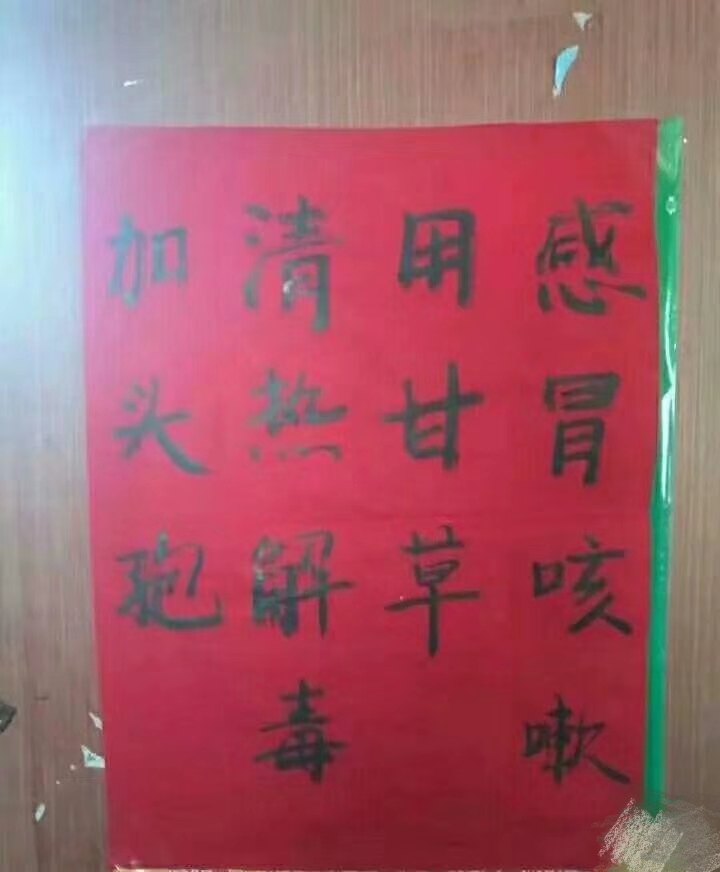 感冒咳嗽
用甘草
清热解毒
加头孢